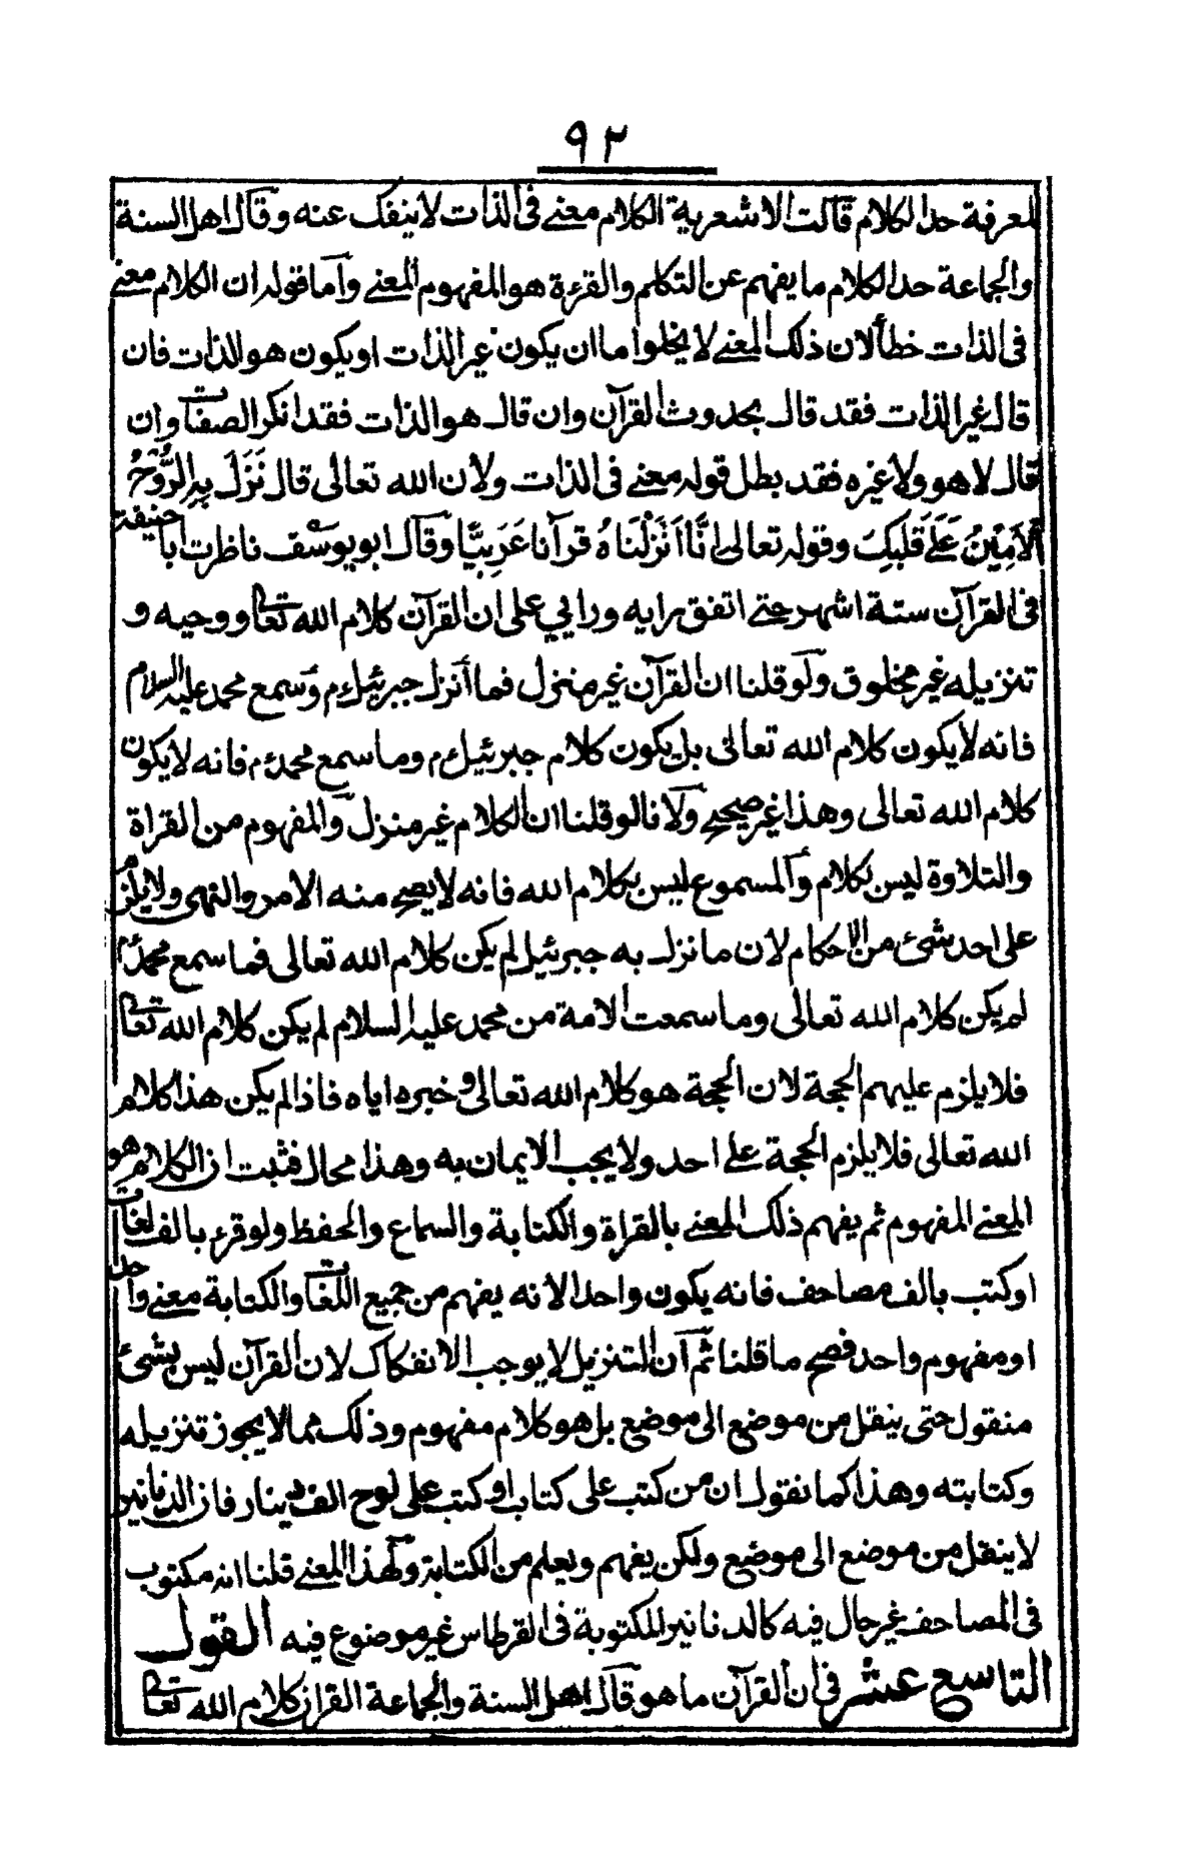 ٩٢
لمعرفة حد الكلام قالت الاشعرية الكلام معنى فى الذات لا ينفك عنه وقال اهل السنة
والجماعة حد الكلام ما يفهم عن التكلم والقرءة هو المفهوم المعنى وأما قوله ان الكلام معنى
فى الذات خطأ لان ذلك المعنى لا يخلوا ما ان يكون غير الذات او يكون هو الذات فان
قال غير الذات فقد قال بحدوث القرآن وان قال هو الذات فقد انكر الصفات وان
قال لا هو ولا غيره فقد بطل قوله معنى فى الذات ولان الله تعالى قال نَزَلَ بِهِ الرُّوحُ
اْلاَمِيْنُ عَلَى قَلْبِكَ وقوله تعالى اِنَّا اَنْزَلْنَاهُ قرآنا عَرَبِيًّا وقال ابو يوسف ناظرت با حنيفة
فى القرآن ستة اشهر حتى اتفق رايه ورايي على ان القرآن كلام الله تعالى ووحيه و
تنزيله غير مخلوق ولو قلنا ان القرآن غير منزل فما أنزل جبرئيل ءم وسمع محمد عليه السلام
فانه لا يكون كلام الله تعالى بل يكون كلام جبرئيل ءم وما سمع محمد ءم فانه لا يكون
كلام الله تعالى وهذا غير صحيح ولانا لو قلنا ان الكلام غير منزل والمفهوم من القراة
والتلاوة ليس بكلام والمسموع ليس بكلام الله فانه لا يصح منه الامر والنهى ولا يلزم
على احد شئ من الاحكام لان ما نزل به جبرئيل لم يكن كلام الله تعالى فما سمع محمد ءم
لم يكن كلام الله تعالى وما سمعت الامة من محمد عليه السلام لم يكن كلام الله تعالى
فلا يلزم عليهم الحجة لان الحجة هو كلام الله تعالى وخبره اياه فاذا لم يكن هذا كلام
الله تعالى فلا يلزم الحجة على احد ولا يجب الايمان به وهذا محال فثبت ان الكلام هو
المعنى المفهوم ثم يفهم ذلك المعنى بالقراة والكتابة والسماع والحفظ ولو قرء بالف لغات
او كتب بالف مصاحف فانه يكون واحدا لانه يفهم من جميع اللغات والكتابة معنى واحد
او مفهوم واحد فصح ما قلنا ثم ان التنزيل لا يوجب الانفكاك لان القرآن ليس بشئ
منقول حتى ينقل من موضع الى موضع بل هو كلام مفهوم وذلك مما لا يجوز تنزيله
وكتابته وهذا كما نقول ان من كتب على كتاب او كتب على لوح الف دينار فان الدنانير
لا ينقل من موضع الى موضع ولكن يفهم ويعلم من الكتابة ولهذا المعنى قلنا انه مكتوب
فى المصاحف غير حال فيه كالدنانير المكتوبة فى القرطاس غير موضوع فيه القول
التاسع عشر فى ان القرآن ما هو قال اهل السنة والجماعة القران كلام الله تعالى